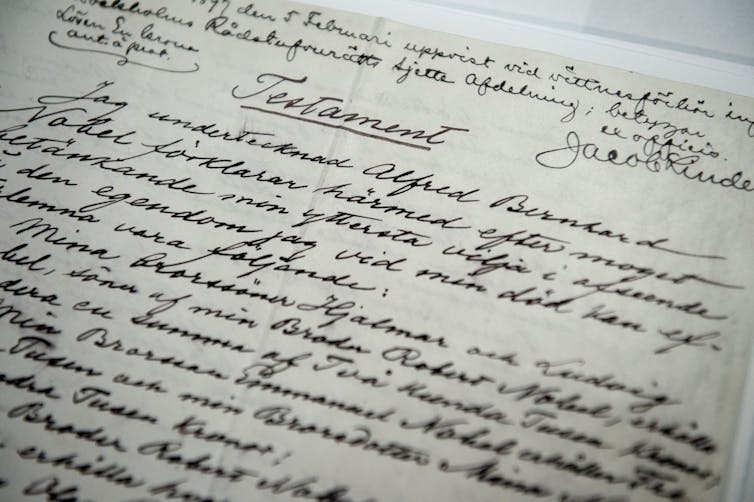 1897 den 5 Februari uppvist vid vittnesförhör in
Stockholms Rådstufvurätts sjette Afdelning; betygar
Lösen En krona ex officio.
Jacob
Testament
Jag undertecknad Alfred Bernhard
Nobel förklarar härmed efter moget
betänkande min yttersta vilja i afseende
å den egendom jag vid min död kan ef-
terlemna vara följande:
Mina Brorssöner Hjalmar och Ludvig
bel, söner af min Broder Robert Nobel, erhålla
dera en Summa af Två Hundra Tusen Kronor,
Min Brorson Emmanuel Nobel erhåller Tre
Tusen och min Brorsdotter Mina
dra Tusen Kronor;
Broder Robert Nobels
erhålla